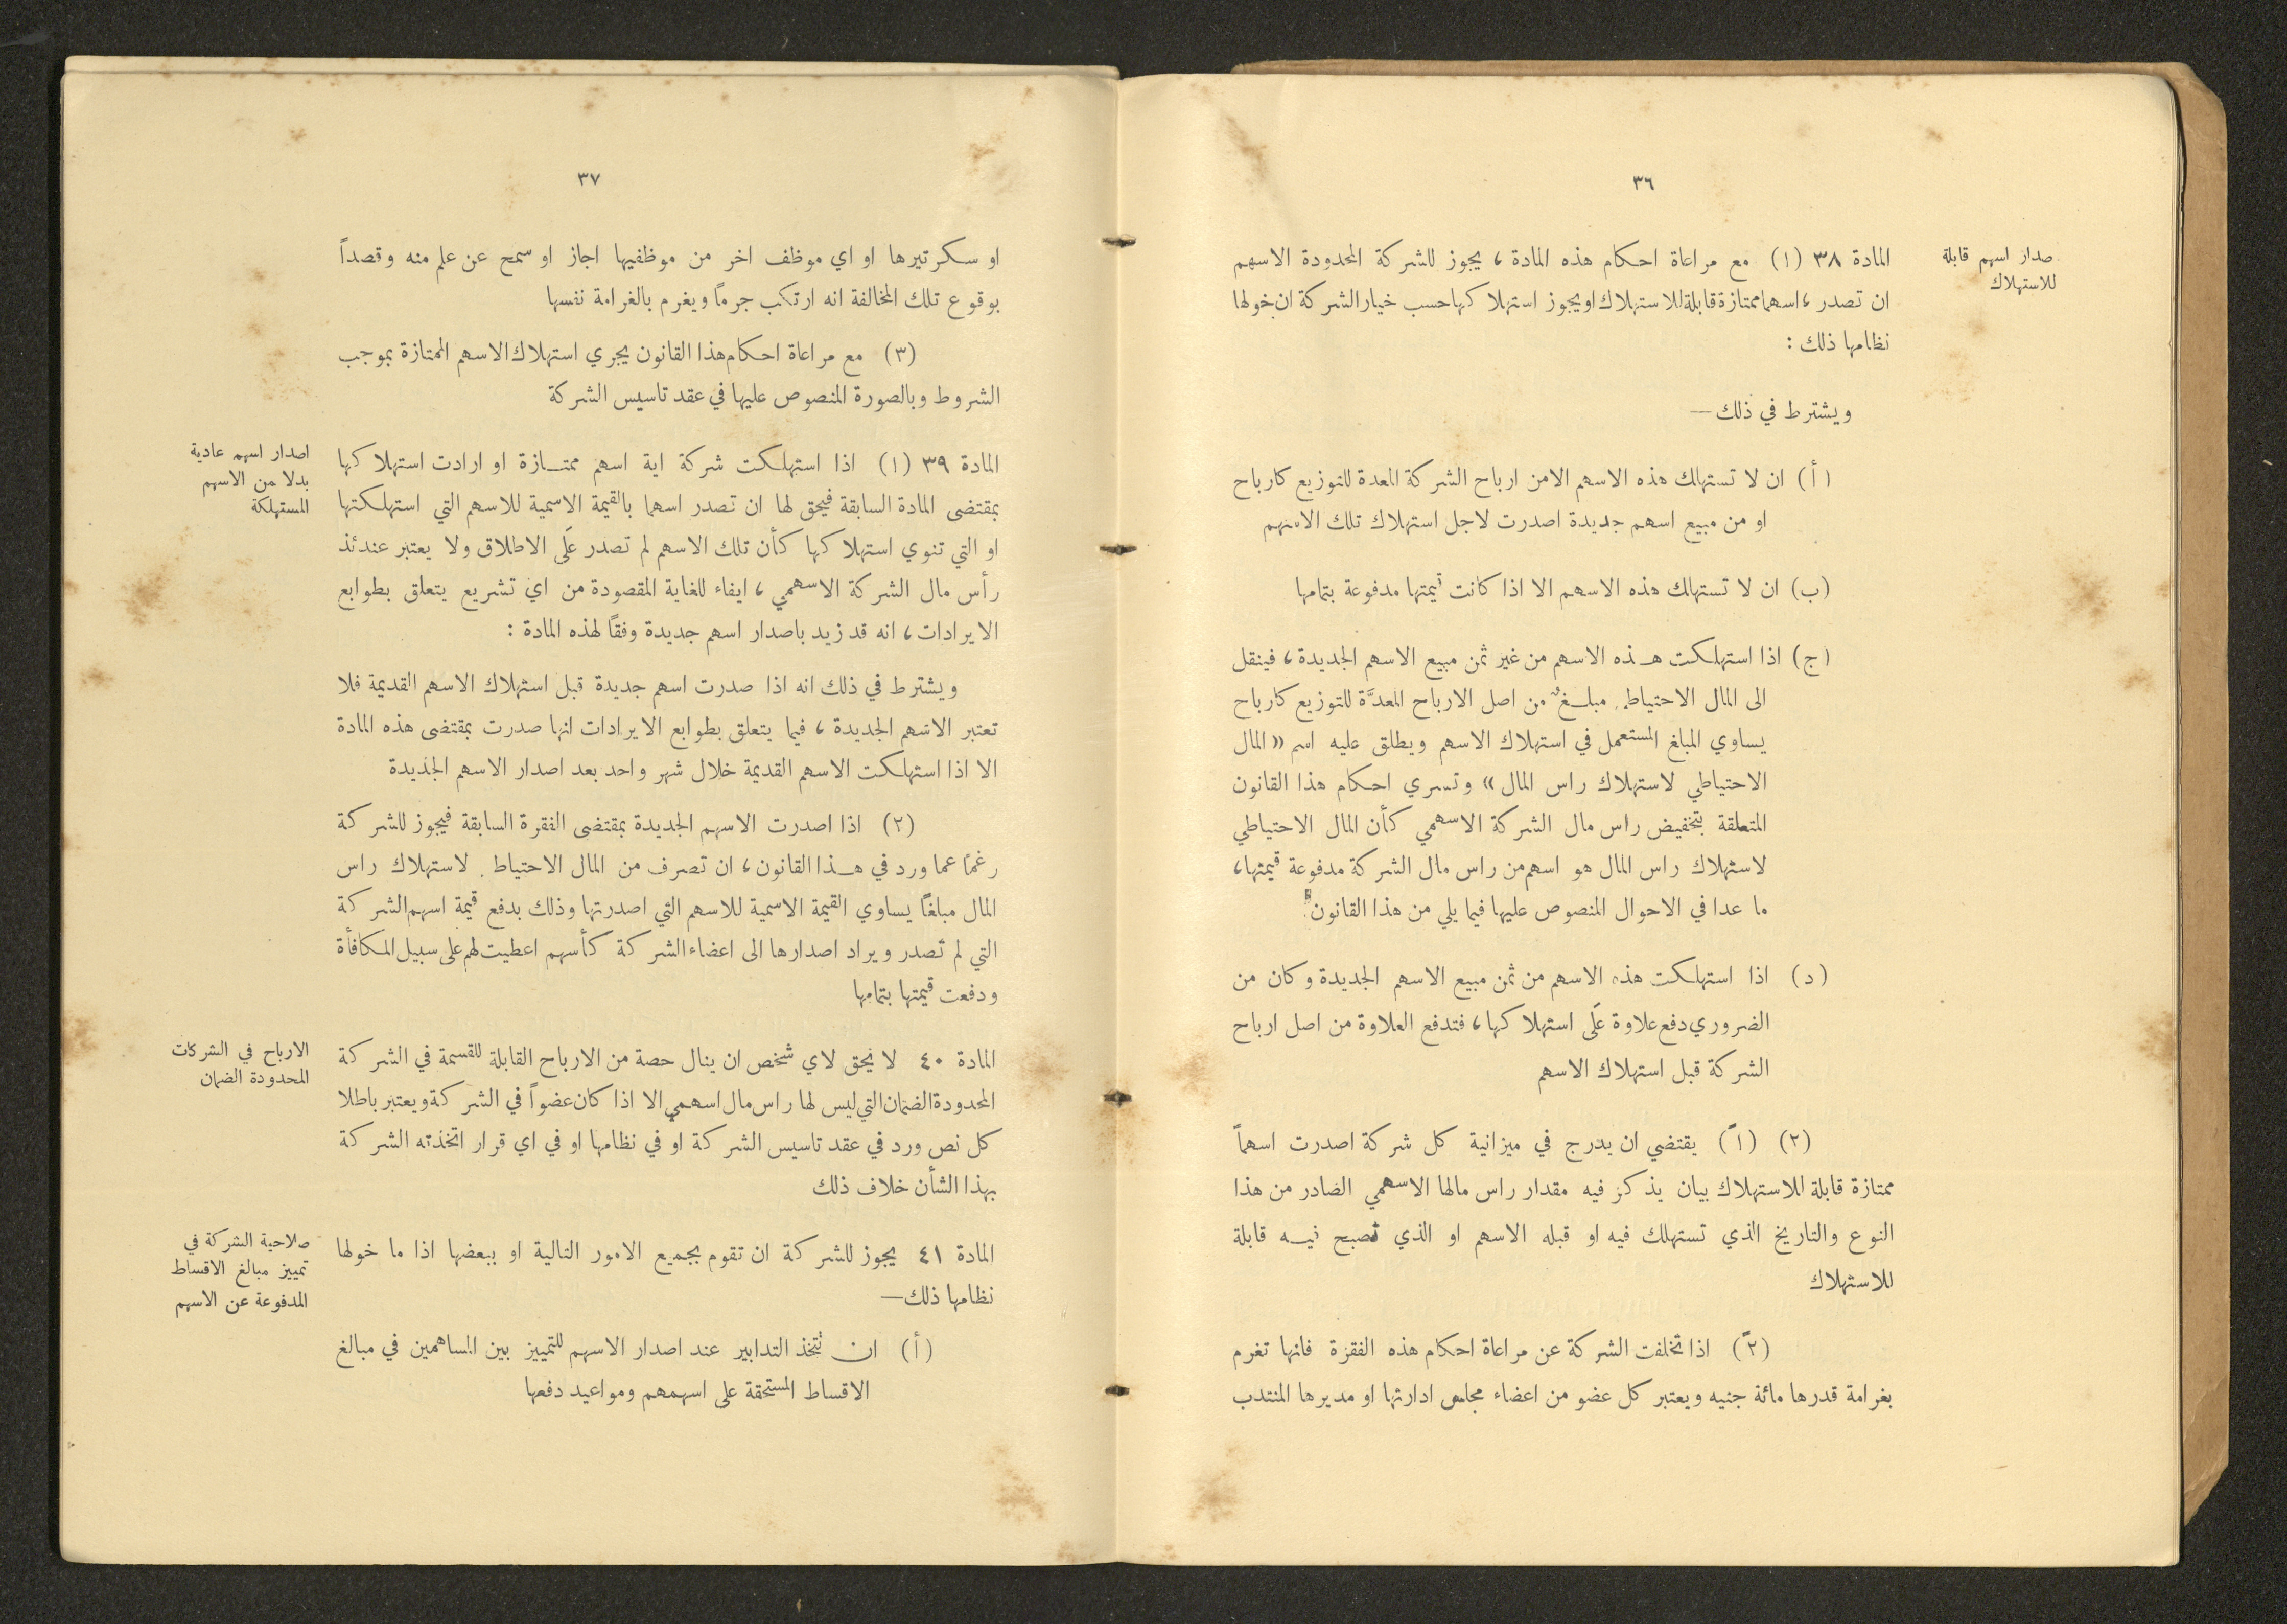 ٣٦
صدار اسهم قابلة
للاستهلاك
المادة ٣٨ (١) مع مراعاة احكام هذه المادة ، يجوز للشركة المحدودة الاسهم
ان تصدر ، اسهما ممتازة قابلة للاستهلاك او يجوز استهلاكها حسب خيار الشركة ان خولها
نظامها ذلك :
ويشترط في ذلك —
(أ) ان لا تستهلك هذه الاسهم الا من ارباح الشركة المعدة للتوزيع كارباح
او من مبيع اسهم جديدة اصدرت لاجل استهلاك تلك الاسهم
(ب) ان لا تستهلك هذه الاسهم الا اذا كانت قيمتها مدفوعة بتمامها
(ج) اذا استهلكت هذه الاسهم من غير ثمن مبيع الاسهم الجديدة ، فينقل
الى المال الاحتياطي مبلغ من اصل الارباح المعدَّة للتوزيع كارباح
يساوي المبلغ المستعمل في استهلاك الاسهم ويطلق عليه اسم « المال
الاحتياطي لاستهلاك راس المال » وتسري احكام هذا القانون
المتعلقة بتخفيض راس مال الشركة الاسهمي كأن المال الاحتياطي
لاستهلاك راس المال هو اسهم من راس مال الشركة مدفوعة قيمتها ،
ما عدا في الاحوال المنصوص عليها فيما يلي من هذا القانون
(د) اذا استهلكت هذه الاسهم من ثمن مبيع الاسهم الجديدة وكان من
الضروري دفع علاوة عَلَى استهلاكها ، فتدفع العلاوة من اصل ارباح
الشركة قبل استهلاك الاسهم
(٢) (١ً) يقتضي ان يدرج في ميزانية كل شركة اصدرت اسهماً
ممتازة قابلة للاستهلاك بيان يذكر فيه مقدار راس مالها الاسهمي الصادر من هذا
النوع والتاريخ الذي تستهلك فيه او قبله الاسهم او الذي تصبح فيه قابلة
للاستهلاك
(٢ً) اذا تخلفت الشركة عن مراعاة احكام هذه الفقرة فانها تغرم
بغرامة قدرها مائة جنيه ويعتبر كل عضو من اعضاء مجلس ادارتها او مديرها المنتدب
٣٧
او سكرتيرها او اي موظف اخر من موظفيها اجاز او سمح عن علم منه وقصداً
بوقوع تلك المخالفة انه ارتكب جرماً ويغرم بالغرامة نفسها
(٣) مع مراعاة احكام هذا القانون يجري استهلاك الاسهم الممتازة بموجب
الشروط وبالصورة المنصوص عليها في عقد تاسيس الشركة
اصدار اسهم عادية
بدلا من الاسهم
المستهلكة
المادة ٣٩ (١) اذا استهلكت شركة اية اسهم ممتازة او ارادت استهلاكها
بمقتضى المادة السابقة فيحق لها ان تصدر اسهما بالقيمة الاسمية للاسهم التي استهلكتها
او التي تنوي استهلاكها كأن تلك الاسهم لم تصدر عَلَى الاطلاق ولا يعتبر عندئذ
رأس مال الشركة الاسهمي ، ايفاء للغاية المقصودة من اي تشريع يتعلق بطوابع
الايرادات ، انه قد زيد باصدار اسهم جديدة وفقاً لهذه المادة :
ويشترط في ذلك انه اذا صدرت اسهم جديدة قبل استهلاك الاسهم القديمة فلا
تعتبر الاسهم الجديدة ، فيما يتعلق بطوابع الايرادات انها صدرت بمقتضى هذه المادة
الا اذا استهلكت الاسهم القديمة خلال شهر واحد بعد اصدار الاسهم الجديدة
(٢) اذا اصدرت الاسهم الجديدة بمقتضى الفقرة السابقة فيجوز للشركة
رغماً عما ورد في هذا القانون ، ان تصرف من المال الاحتياطي لاستهلاك راس
المال مبلغاً يساوي القيمة الاسمية للاسهم التي اصدرتها وذلك بدفع قيمة اسهم الشركة
التي لم تصدر ويراد اصدارها الى اعضاء الشركة كأسهم اعطيت لهم على سبيل المكافأة
ودفعت قيمتها بتمامها
الارباح في الشركات
المحدودة الضمان
المادة ٤٠ لا يحق لاي شخص ان ينال حصة من الارباح القابلة للقسمة في الشركة
المحدودة الضمان التي ليس لها راس مال اسهمي الا اذا كان عضواً في الشركة ويعتبر باطلا
كل نص ورد في عقد تاسيس الشركة او في نظامها او في اي قرار اتخذته الشركة
بهذا الشأن خلاف ذلك
صلاحية الشركة في
تمييز مبالغ الاقساط
المدفوعة عن الاسهم
المادة ٤١ يجوز للشركة ان تقوم بجميع الامور التالية او ببعضها اذا ما خولها
نظامها ذلك —
(أ) ان تتخذ التدابير عند اصدار الاسهم للتمييز بين المساهمين في مبالغ
الاقساط المستحقة على اسهمهم ومواعيد دفعها